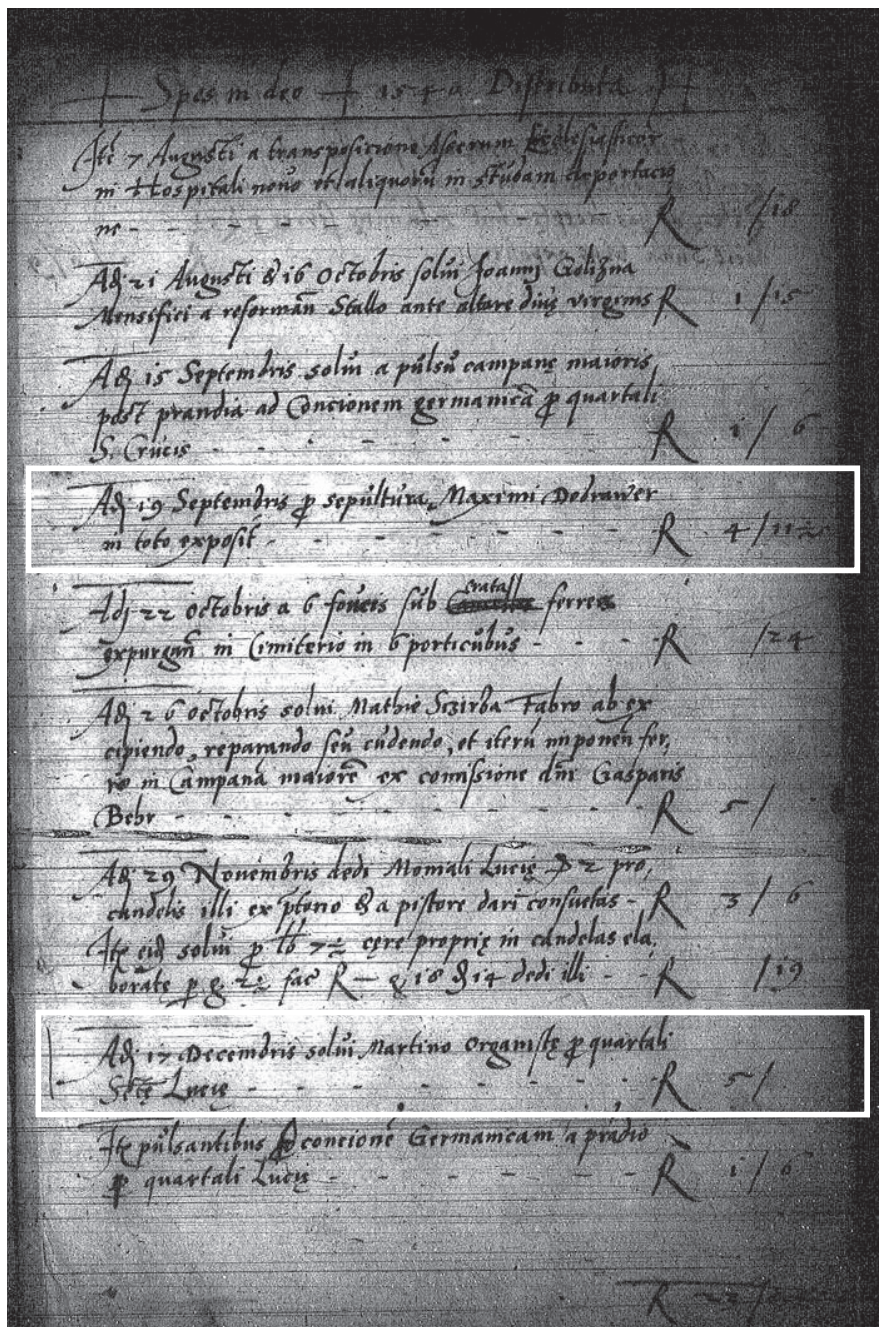 Spes in deo 154 Distributa
Ite 7 Augusti a transposicione Asserum Ecclesiasticor
in Hospitali novo et aliquorū in stubam deportacio
ne - - - - - - R /18
Adj 21 Augusti & 16 Octobris solui Joannj Golizna
Mensifici a reformān Stallo ante altare diuę virginis R 1 /15
Adj 15 Septembris solui a pulsu campanę maioris
post prandia ad Concionem germanicā p quartali
S. Crucis - - - - - - R 1 / 6
Adj 19 Septembris p sepultura Maximi Dodrawer
in toto exposit - - - - - - R 4 /11½
Adj 22 Octobris a 6 foueis sub cratass ferreis
expurgan̄ in Cimiterio in 6 porticubus - - - - R /24
Adj 26 Octobris solui Mathie Sczirba Fabro ab ex
cipiendo, reparando seu cudendo, et iterū imponen̄ fer,
ro in Campanā maiorē ex comissione dnī Gasparis
Behr - - - - - - - R 5 /
Adj 29 Nouembris dedi Moniali Lucię 2 pro,
candelis illi ex ptorio & a pistore dari consuetas - R 3 / 6
Itę eid solui p lb 7½ cęre proprię in candelas ela,
borate p g 2½ fac R — g 18 14 dedi illi - - R /19
Adj 17 Decembris solui Martino Organistę p quartali
Sctę Lucię - - - - - - - R 5 /
Itę pulsantibus concionē Germanicam a prādio
p quartali Lucię - - - - - - R 1 / 6
R 22 /